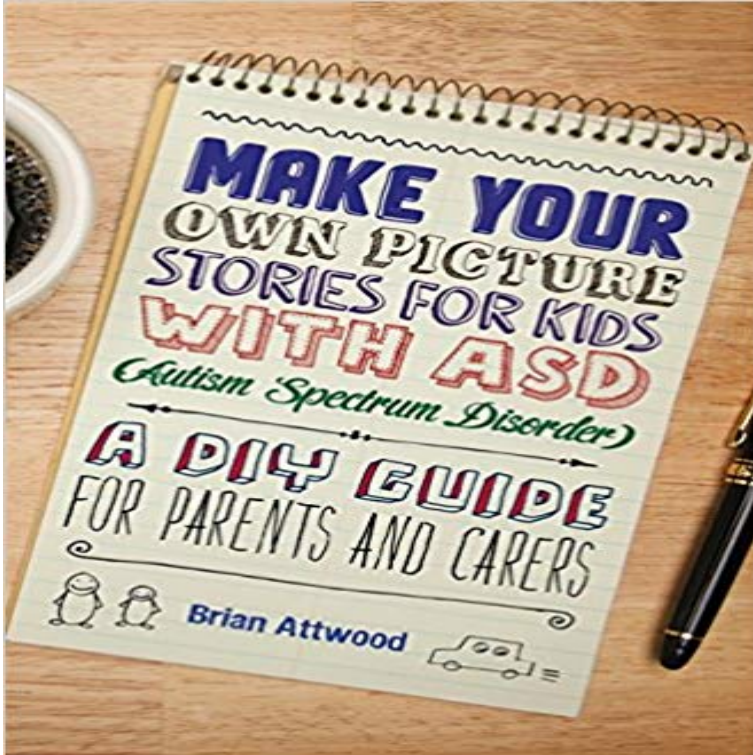 MAKE YOUR
OWN PICTURE
STORIES FOR KIDS
WITH ASD
(Autism Spectrum Disorder)
A DIY GUIDE
FOR PARENTS AND CARERS
Brian Attwood